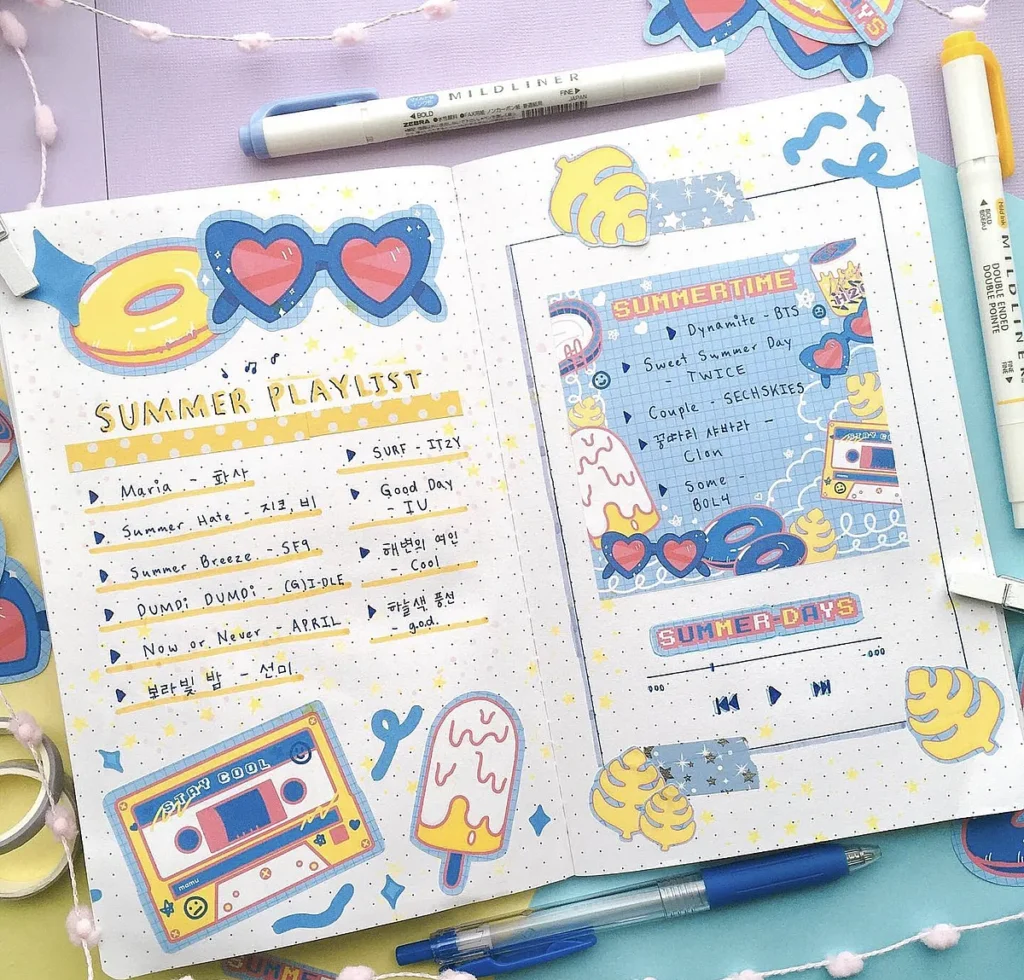 MILDLINER
◀BOLD
FINE▶
JAPAN
ZEBRA
SUMMER PLAYLIST
Maria - 화사
Summer Hate - 지코, 비
Summer Breeze - SF9
DUMDi DUMDi - (G)I-DLE
Now or Never - APRIL
보라빛 밤 - 선미
SURF - ITZY
Good Day
- IU
해변의 여인
- Cool
하늘색 풍선
- g.o.d.
STAY COOL
momu
SUMMERTIME
Dynamite - BTS
Sweet Summer Day
- TWICE
Couple - SECHSKIES
꿍따리 샤바라 -
Clon
Some -
BOL4
STAY CO
SUMMER-DAYS
000
-000
MILDLINER
DOUBLE ENDED
DOUBLE POINTE
◀BOLD
FINE▶
DAYS
SUMMER